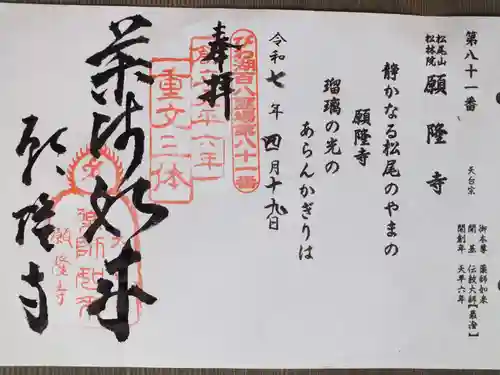 第八十一番
松尾山
松林院
願隆寺
天台宗
御本尊 薬師如来
開基 伝教大師【最澄】
開創年 天平六年
静かなる松尾のやまの
願隆寺
瑠璃の光の
あらんかぎりは
令和七年四月十九日
奉拝
びわ湖百八霊場第八十一番
重文三体
薬師如来
願隆寺
薬師如来
願隆寺